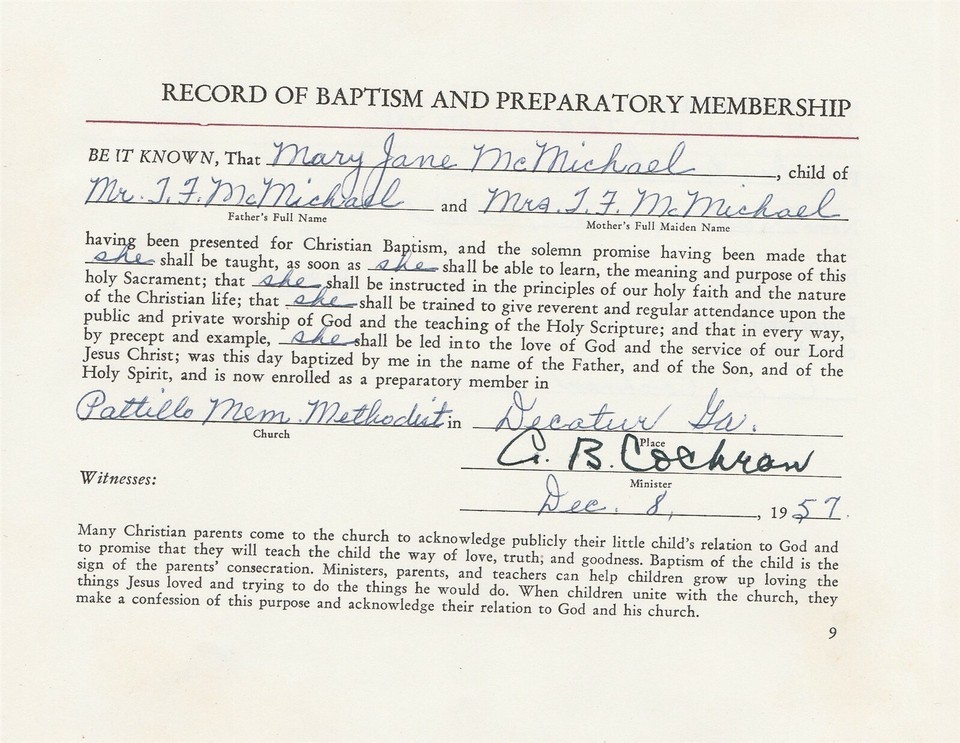 RECORD OF BAPTISM AND PREPARATORY MEMBERSHIP
BE IT KNOWN, That Mary Jane McMichael, child of
Mr. T. F. McMichael and Mrs. T. F. McMichael
Father's Full Name Mother's Full Maiden Name
having been presented for Christian Baptism, and the solemn promise having been made that
she shall be taught, as soon as she shall be able to learn, the meaning and purpose of this
holy Sacrament; that she shall be instructed in the principles of our holy faith and the nature
of the Christian life; that she shall be trained to give reverent and regular attendance upon the
public and private worship of God and the teaching of the Holy Scripture; and that in every way,
by precept and example, she shall be led into the love of God and the service of our Lord
Jesus Christ; was this day baptized by me in the name of the Father, and of the Son, and of the
Holy Spirit, and is now enrolled as a preparatory member in
Pattillo Mem. Methodist in Decatur Ga.
Church Place
G. B. Cochran
Witnesses: Minister
Dec. 8, , 1957.
Many Christian parents come to the church to acknowledge publicly their little child's relation to God and
to promise that they will teach the child the way of love, truth, and goodness. Baptism of the child is the
sign of the parents' consecration. Ministers, parents, and teachers can help children grow up loving the
things Jesus loved and trying to do the things he would do. When children unite with the church, they
make a confession of this purpose and acknowledge their relation to God and his church.
9